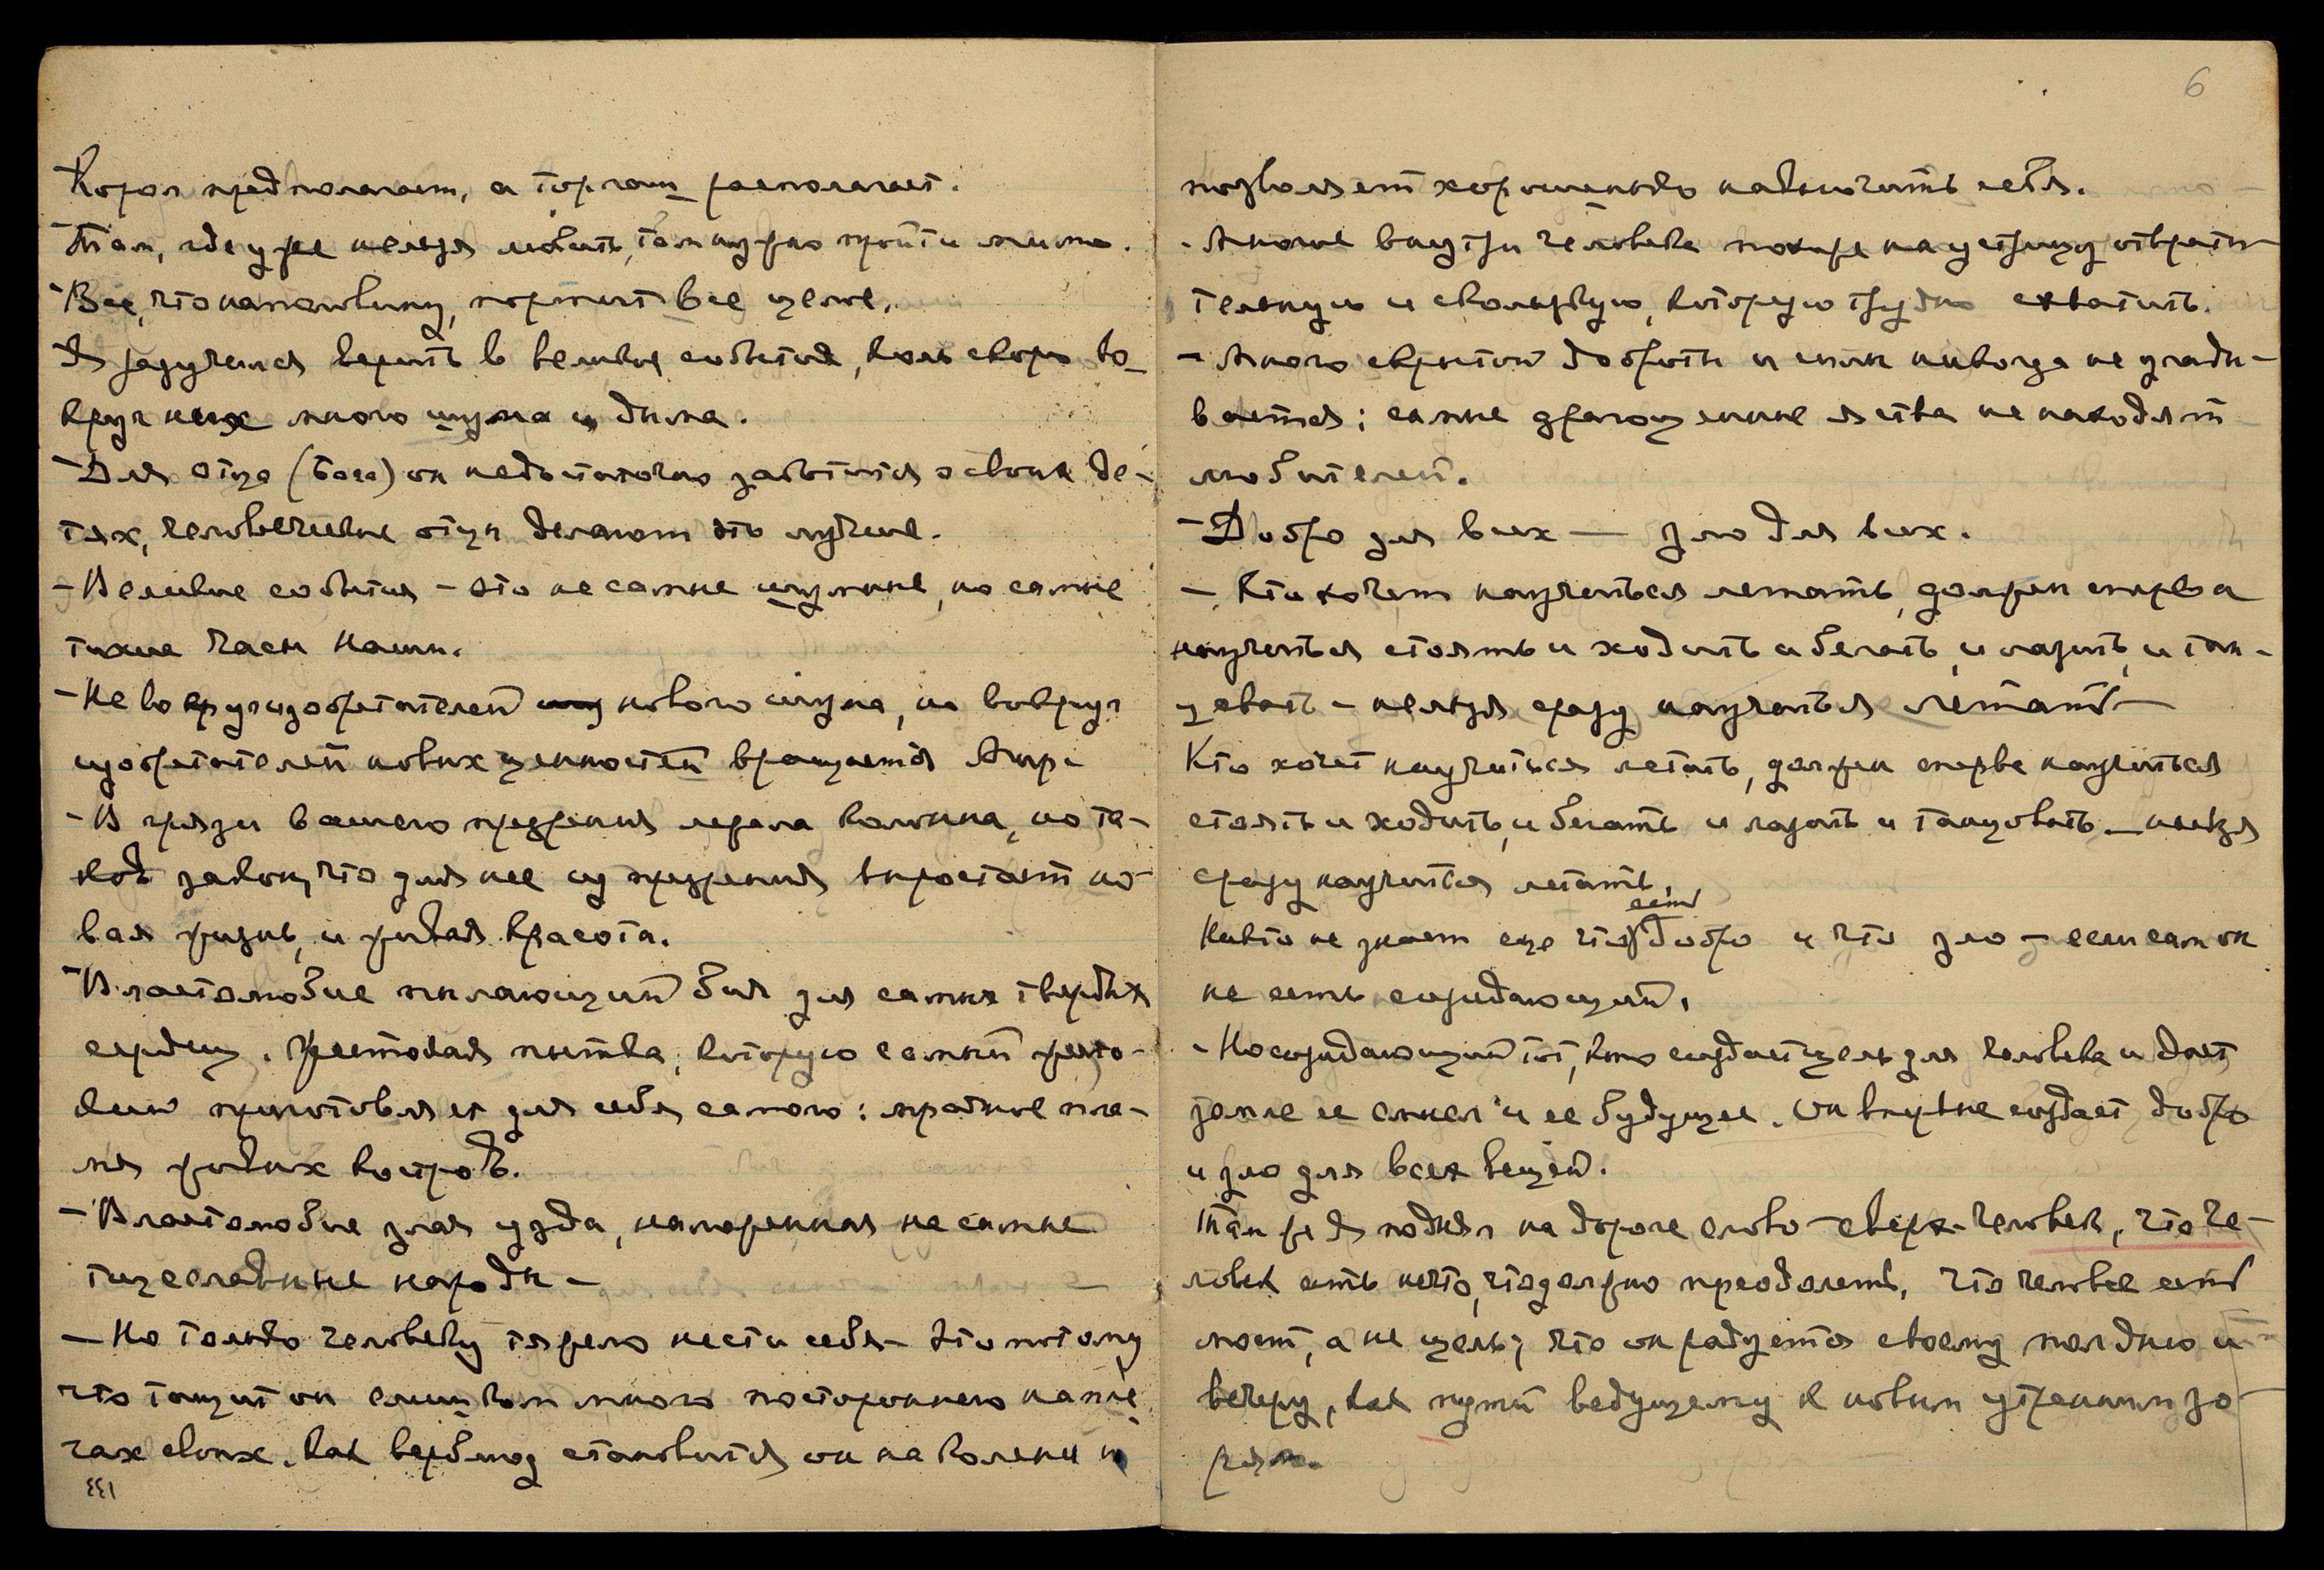 Король предполагает, а торгаш располагает.
- Там, где уже нельзя любить, там нужно пройти мимо.
- Все, что наполовину, портит все целое.
Я разучился верить в великие события, коль скоро во-
круг них много шума и дыма.
- Для отца (бога) он недостаточно заботится о своих де-
тях, человеческие отцы делают это лучше.
- Великие события - это не самые шумные, но самые
тихие часы наши.
- Не вокруг изобретателей нового шума, но вокруг
изобретателей новых ценностей вращается Мир.
- В грязи вашего презрения лежала колонна, но та-
ков закон, что для нее из презрения вырастает но-
вая жизнь, и живая красота.
- Властолюбие пылающий бич для самых твердых
сердец. Жестокая пытка, которую самый жесто-
кий приготовляет для себя самого: мрачное пла-
мя живых костров.
- Властолюбие злая узда, наложенная на самые
тщеславные народы -
- Но только человеку тяжело нести себя - это потому
что тащит он слишком много постороннего на пле-
чах своих. Как верблюд становится он на колени и
133
6
позволяет хорошенько навьючить себя.
- Многое внутри человека похоже на устрицу отврати-
тельную и скользкую, которую трудно схватить.
- Много скрытой доброты и силы никогда не угады-
вается; самые драгоценные яства не находят
любителей.
- Добро для всех — зло для всех.
- Кто хочет научиться летать, должен сперва
научиться стоять и ходить и бегать, и лазить, и тан-
цевать - нельзя сразу научиться летать -
Кто хочет научиться летать, должен сперва научиться
стоять и ходить, и бегать и лазить и танцовать - нельзя
сразу научиться летать.
Никто не знает еще что есть добро и что зло - если сам он
не есть созидающий.
- Но созидающий тот, кто создает цель для человека и дает
земле ее смысл и ее будущее. Он впервые создает добро
и зло для всех вещей.
Там же я поднял на дороге слово - сверх-человек, что че-
ловек есть нечто, что должно преодолеть, что человек есть
мост, а не цель; что он радуется своему полдню и
вечеру, как пути ведущему к новым утренним зо-
рям.